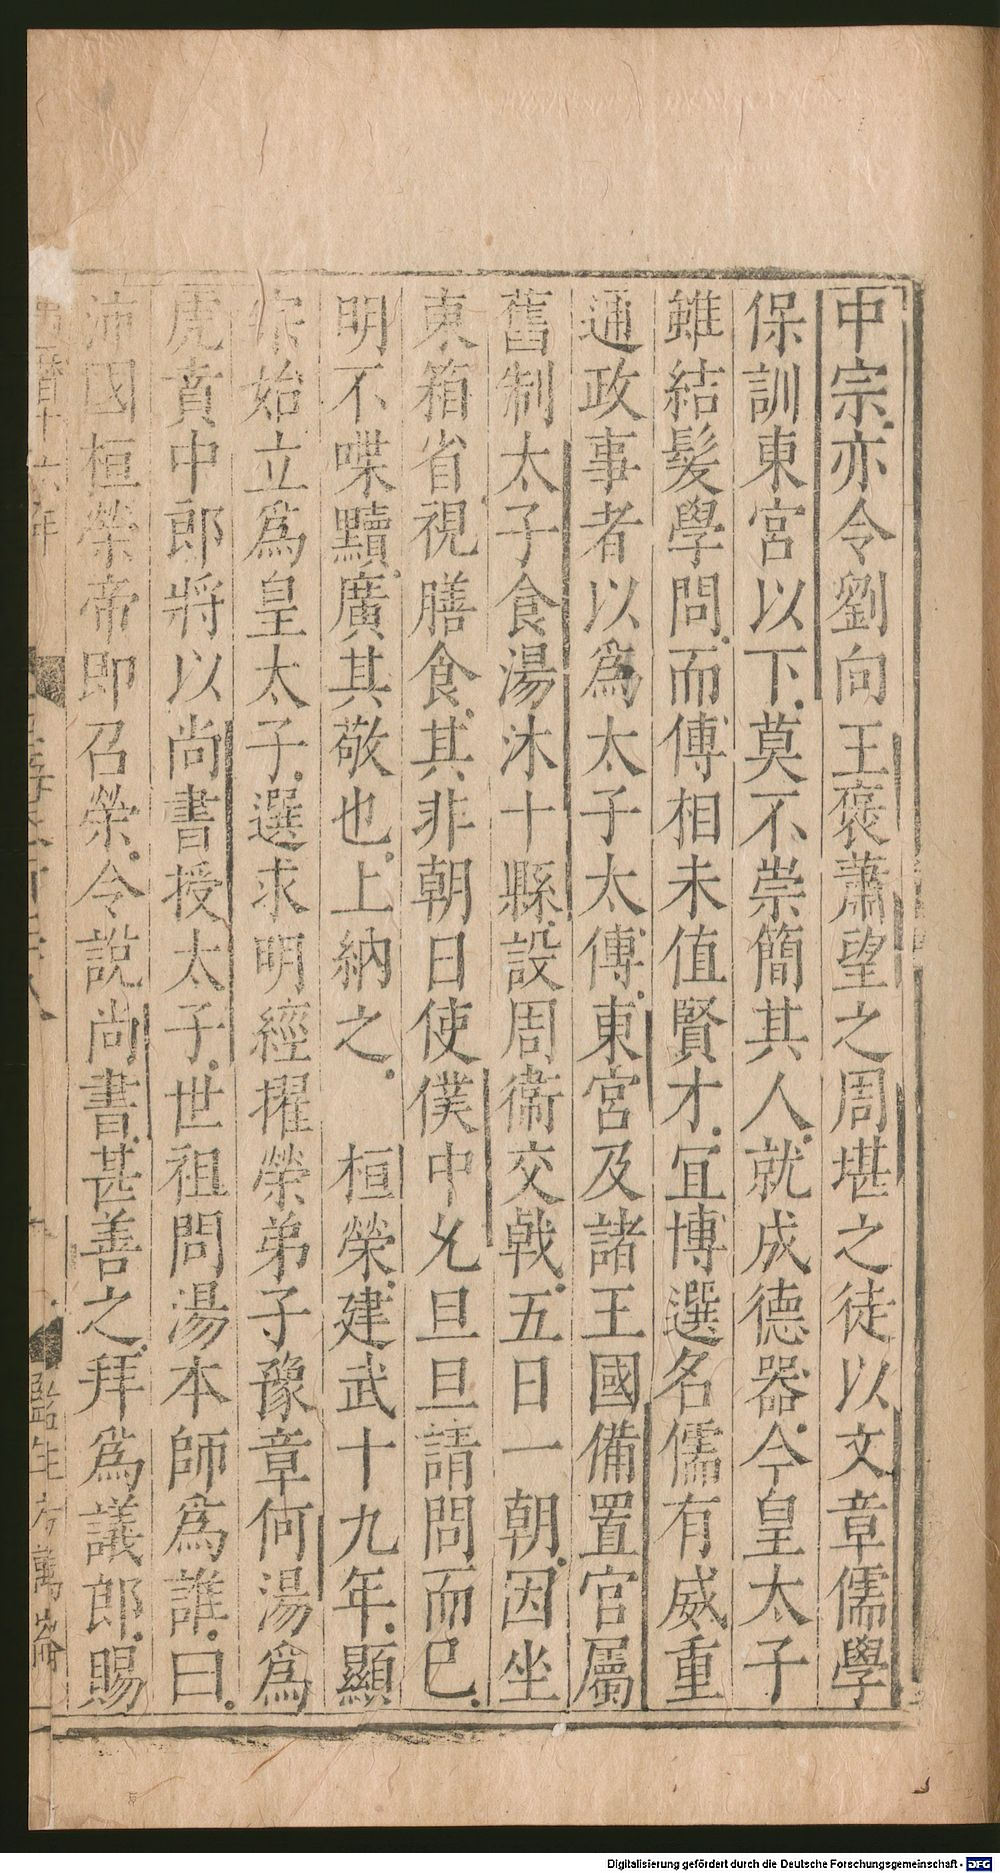 中宗亦令劉向王褒蕭望之周堪之徒以文章儒學
保訓東宮以下莫不崇簡其人就成德器今皇太子
雖結髮學問而傅相未值賢才宜博選名儒有威重
通政事者以爲太子太傅東宮及諸王國備置官屬
舊制太子食湯沐十縣設周衛交戟五日一朝因坐
東箱省視膳食其非朝日使僕中允旦旦請問而已
明不喋黷廣其敬也上納之 桓榮建武十九年顯
宗始立爲皇太子選求明經擢榮弟子豫章何湯爲
虎賁中郎將以尚書授太子世祖問湯本師爲誰曰
沛國桓榮帝即召榮令說尚書甚善之拜爲議郎賜
監生 萬
Digitalisierung gefördert durch die Deutsche Forschungsgemeinschaft - DFG